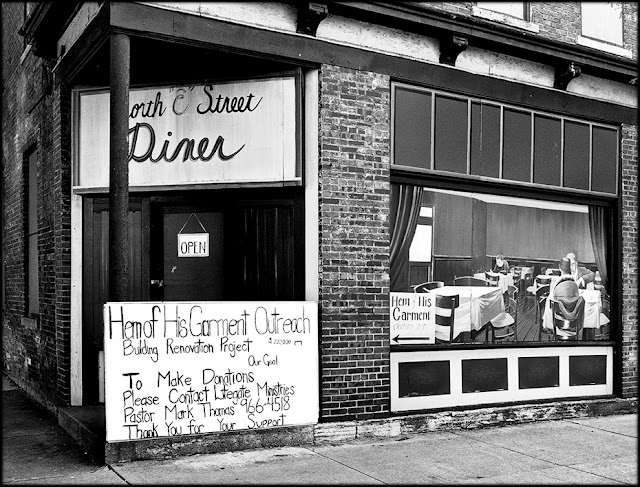 orth "C" Street
Diner
OPEN
Hem of His Garment Outreach
Building Renovation Project
Our Goal
To Make Donations
Please Contact Lifegate Ministries
Pastor Mark Thomas 966-4518
Thank You For Your Support
Hem of His
Garment